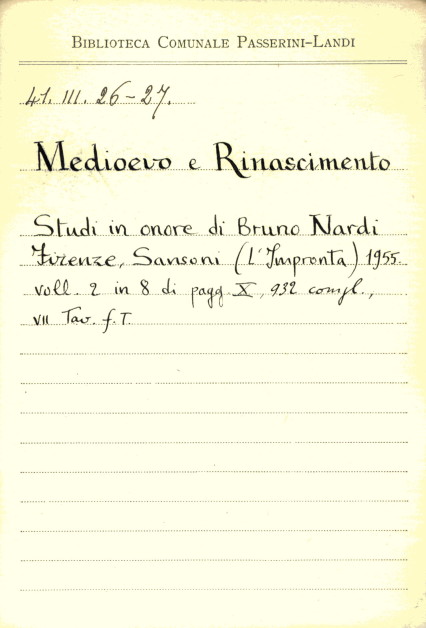 BIBLIOTECA COMUNALE PASSERINI-LANDI
41. III. 26-27.
Medioevo e Rinascimento
Studi in onore di Bruno Nardi
Firenze, Sansoni (L'Impronta) 1955
voll. 2 in 8 di pagg. X, 932 compl.,
VII Tav. f.T.